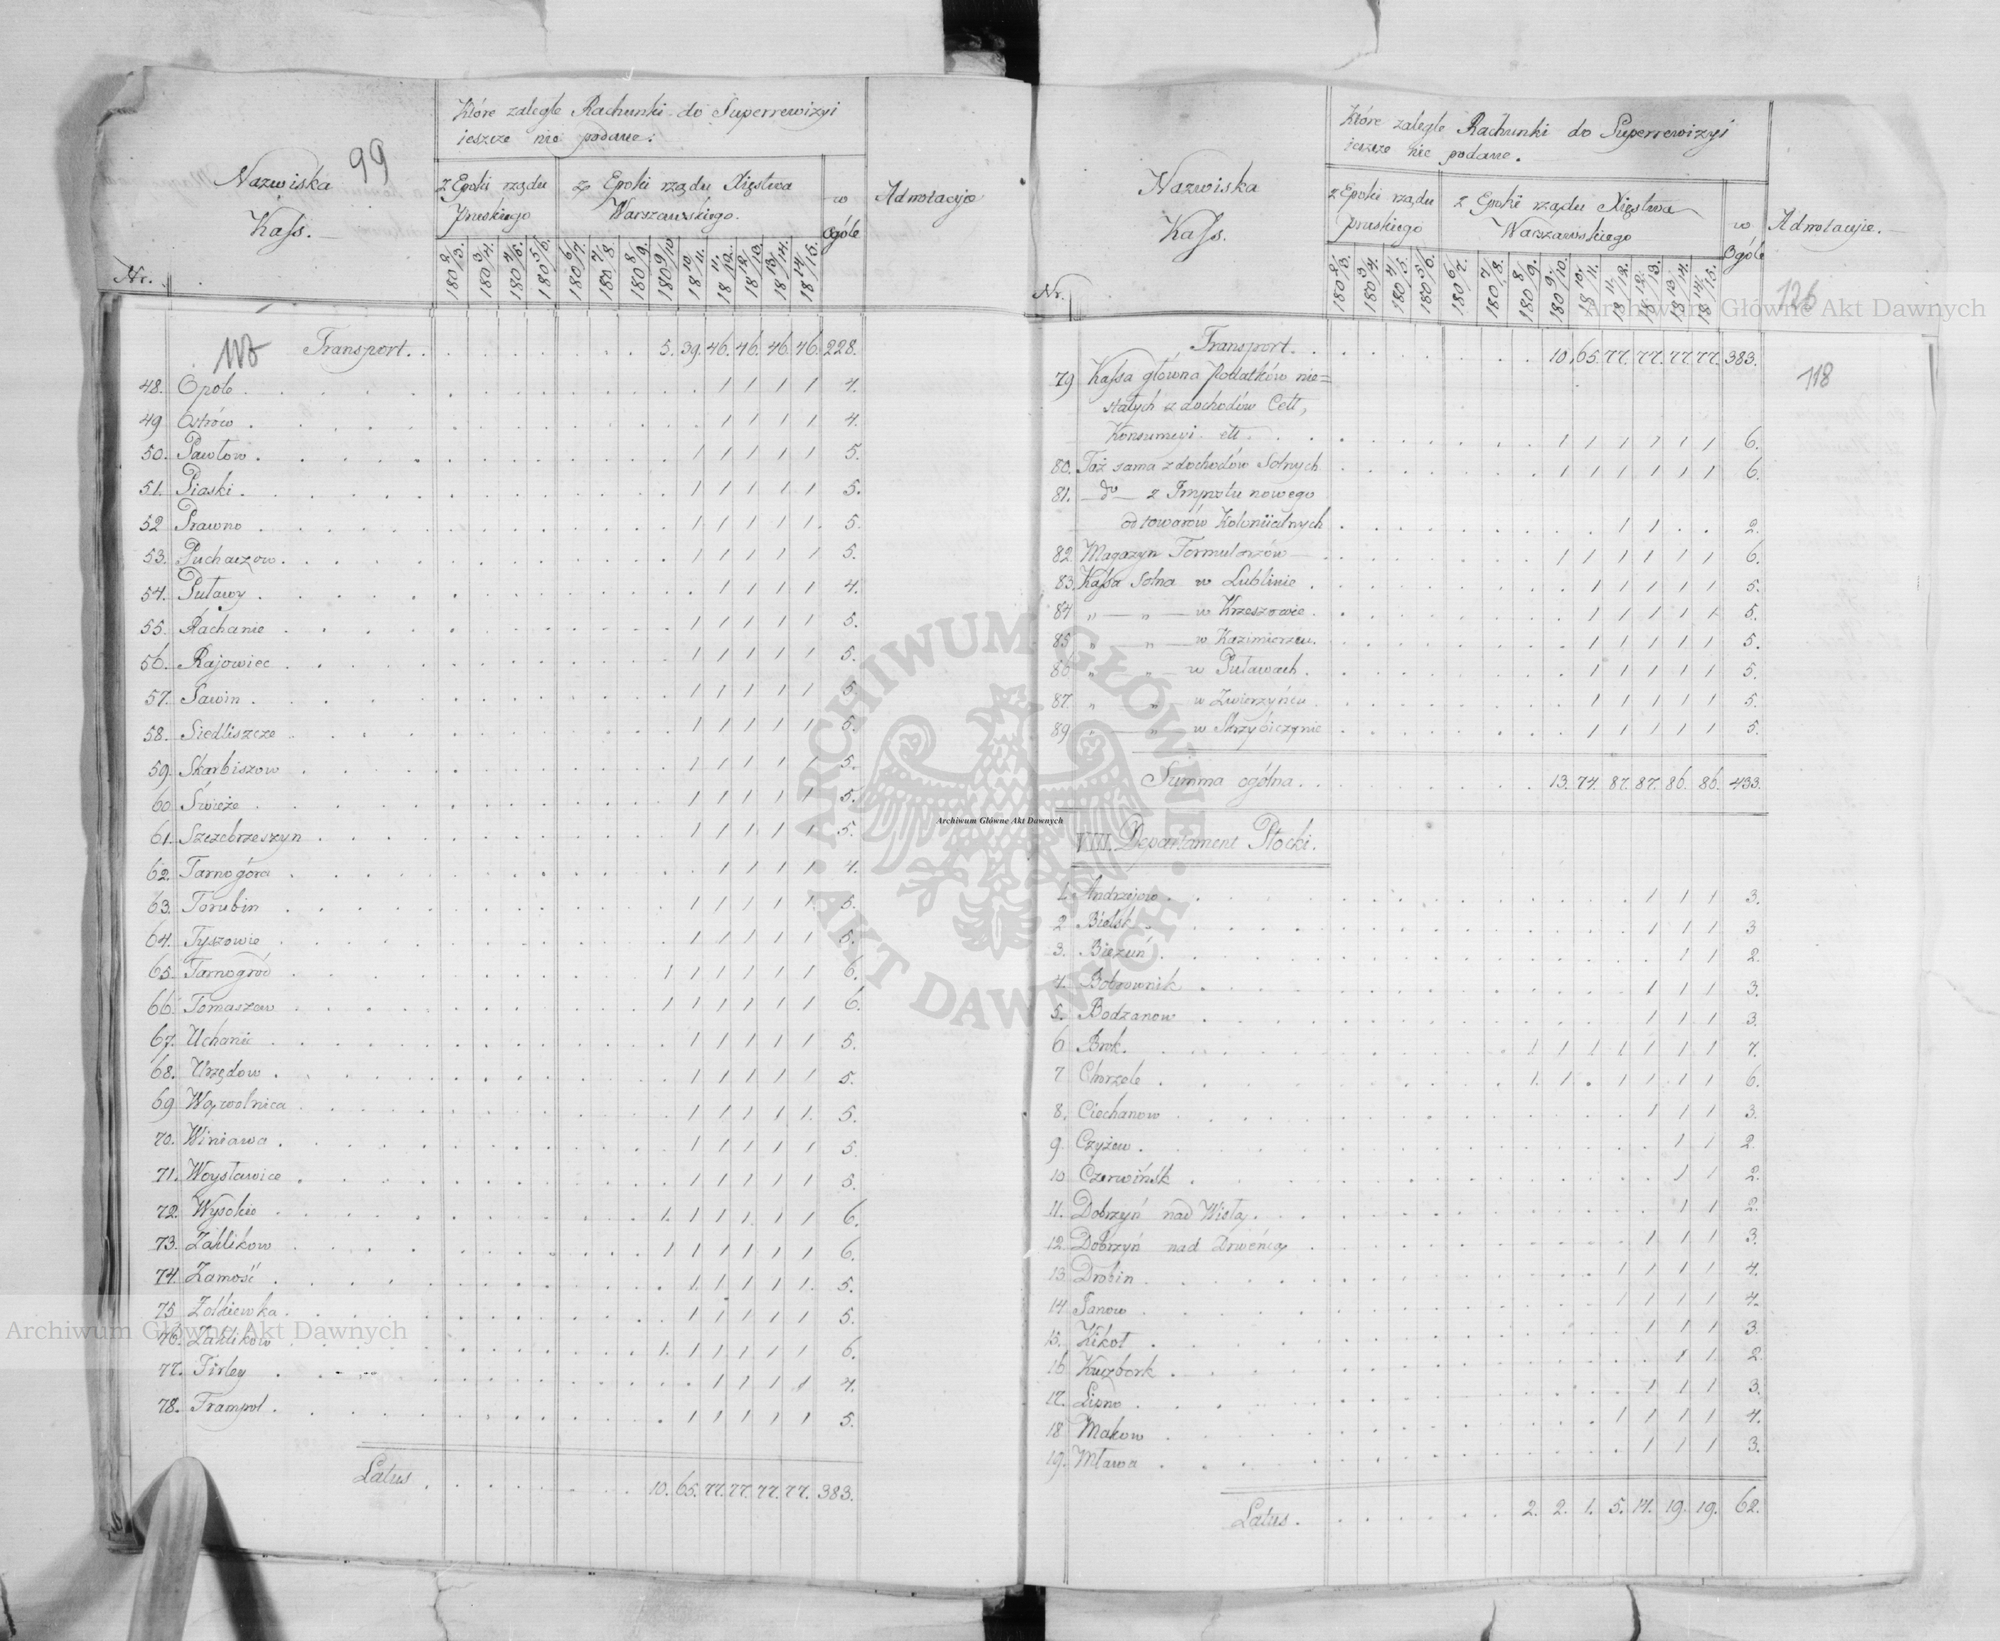 99
Które zaległe Rachunki do Superrewizyi
ieszcze nie podane:
Nazwiska
Kass.
Nr.
z Epoki rządu
Pruskiego
z Epoki rządu Xięstwa
Warszawskiego.
w
Ogóle
Adnotacyje
180 2/3. 180 3/4. 180 4/5. 180 5/6. 180 6/7. 180 7/8. 180 8/9. 180 9/10 18 10/11. 18 11/12. 18 12/13. 18 13/14. 18 14/15.
Transport. 5. 39. 46. 46. 46. 46. 228.
48. Opole 1 1 1 1 4.
49 Ostrów 1 1 1 1 4.
50. Pawłow 1 1 1 1 1 5.
51. Piaski 1 1 1 1 1 5.
52 Prawno 1 1 1 1 1 5.
53. Puchaczow 1 1 1 1 1 5.
54. Puławy 1 1 1 1 4.
55. Rachanie 1 1 1 1 1 5.
56. Rajowiec 1 1 1 1 1 5.
57. Sawin 1 1 1 1 1 5
58. Siedliszcze 1 1 1 1 1 5.
59. Skarbiszow 1 1 1 1 1 5.
60 Świeże 1 1 1 1 1 5.
61. Szczebrzeszyn 1 1 1 1 1 5.
62. Tarnogóra 1 1 1 1 4.
63. Torubin 1 1 1 1 1 5.
64. Tyszowie 1 1 1 1 1 5.
65. Tarnogród 1 1 1 1 1 1 6.
66. Tomaszow 1 1 1 1 1 1 6.
67. Uchanie 1 1 1 1 1 5.
68. Urzędow 1 1 1 1 1 5.
69 Wąwolnica 1 1 1 1 1 5.
70. Winiawa 1 1 1 1 1 5
71. Woysławice 1 1 1 1 1 5.
72. Wysokie 1 1 1 1 1 1 6.
73. Zaklikow 1 1 1 1 1 1 6.
74. Zamość 1 1 1 1 1 5.
75 Żołkiewka 1 1 1 1 1 5.
76. Zaklikow 1 1 1 1 1 1 6.
77. Firley 1 1 1 1 4.
78. Frampol 1 1 1 1 1 5.
Latus 10. 65. 77. 77. 77. 77. 383.
Które zaległe Rachunki do Superrewizyi
ieszcze nie podane.
Nazwiska
Kass.
Nr.
z Epoki rządu
pruskiego
z Epoki rządu Xięstwa
Warszawskiego
w
Ogóle
Adnotacyie.
180 2/3. 180 3/4. 180 4/5. 180 5/6. 180 6/7. 180 7/8. 180 8/9. 180 9/10. 18 10/11. 18 11/12. 18 12/13. 18 13/14. 18 14/15.
126
118
Transport. 10. 65. 77. 77. 77. 77. 383.
79 Kassa główna Podatków nie=
stałych z dochodów Cełł,
Konsumcyi ett 1 1 1 1 1 1 6.
80. Taż sama z dochodów Solnych 1 1 1 1 1 1 6.
81. — do — z Impostu nowego
od towarów Kolonijalnych 1 1 2.
82 Magazyn Formularzów 1 1 1 1 1 1 6.
83. Kassa Solna w Lublinie 1 1 1 1 1 5.
84 „ — „ — w Krzeszowie 1 1 1 1 1 5.
85 „ — „ — w Kazimierzu 1 1 1 1 1 5.
86 „ — „ — w Puławach 1 1 1 1 1 5.
87. „ „ — w Zwierzyńcu 1 1 1 1 1 5.
89 „ — „ — w Skrzybiczynie 1 1 1 1 1 5.
Summa ogólna 13. 74. 87. 87. 86. 86. 433.
VIII. Departament Płocki.
1. Andrzejow 1 1 1 3.
2 Bielsk 1 1 1 3
3. Bieżuń 1 1 2.
4. Bobrownik 1 1 1 3.
5. Bodzanow 1 1 1 3.
6 Brok 1 1 1 1 1 1 1 7.
7 Chorzele 1. 1. 1 1 1 1 6.
8. Ciechanow 1 1 1 3.
9. Czyżew 1 1 2.
10 Czerwińśk 1 1 2.
11. Dobrzyń nad Wisłą 1 1 2.
12. Dobrzyń nad Drwęńcą 1 1 1 3.
13. Drobin 1 1 1 1 4.
14 Janow 1 1 1 1 4.
15. Kikoł 1 1 1 3.
16 Kuczbork 1 1 2.
17. Lipno 1 1 1 3.
18 Makow 1 1 1 1 4.
19. Mława 1 1 1 3.
Latus. 2. 2. 1. 5. 14. 19. 19. 62.
Archiwum Główne Akt Dawnych
Archiwum Główne Akt Dawnych
Archiwum Główne Akt Dawnych
ARCHIWUM GŁÓWNE AKT DAWNYCH